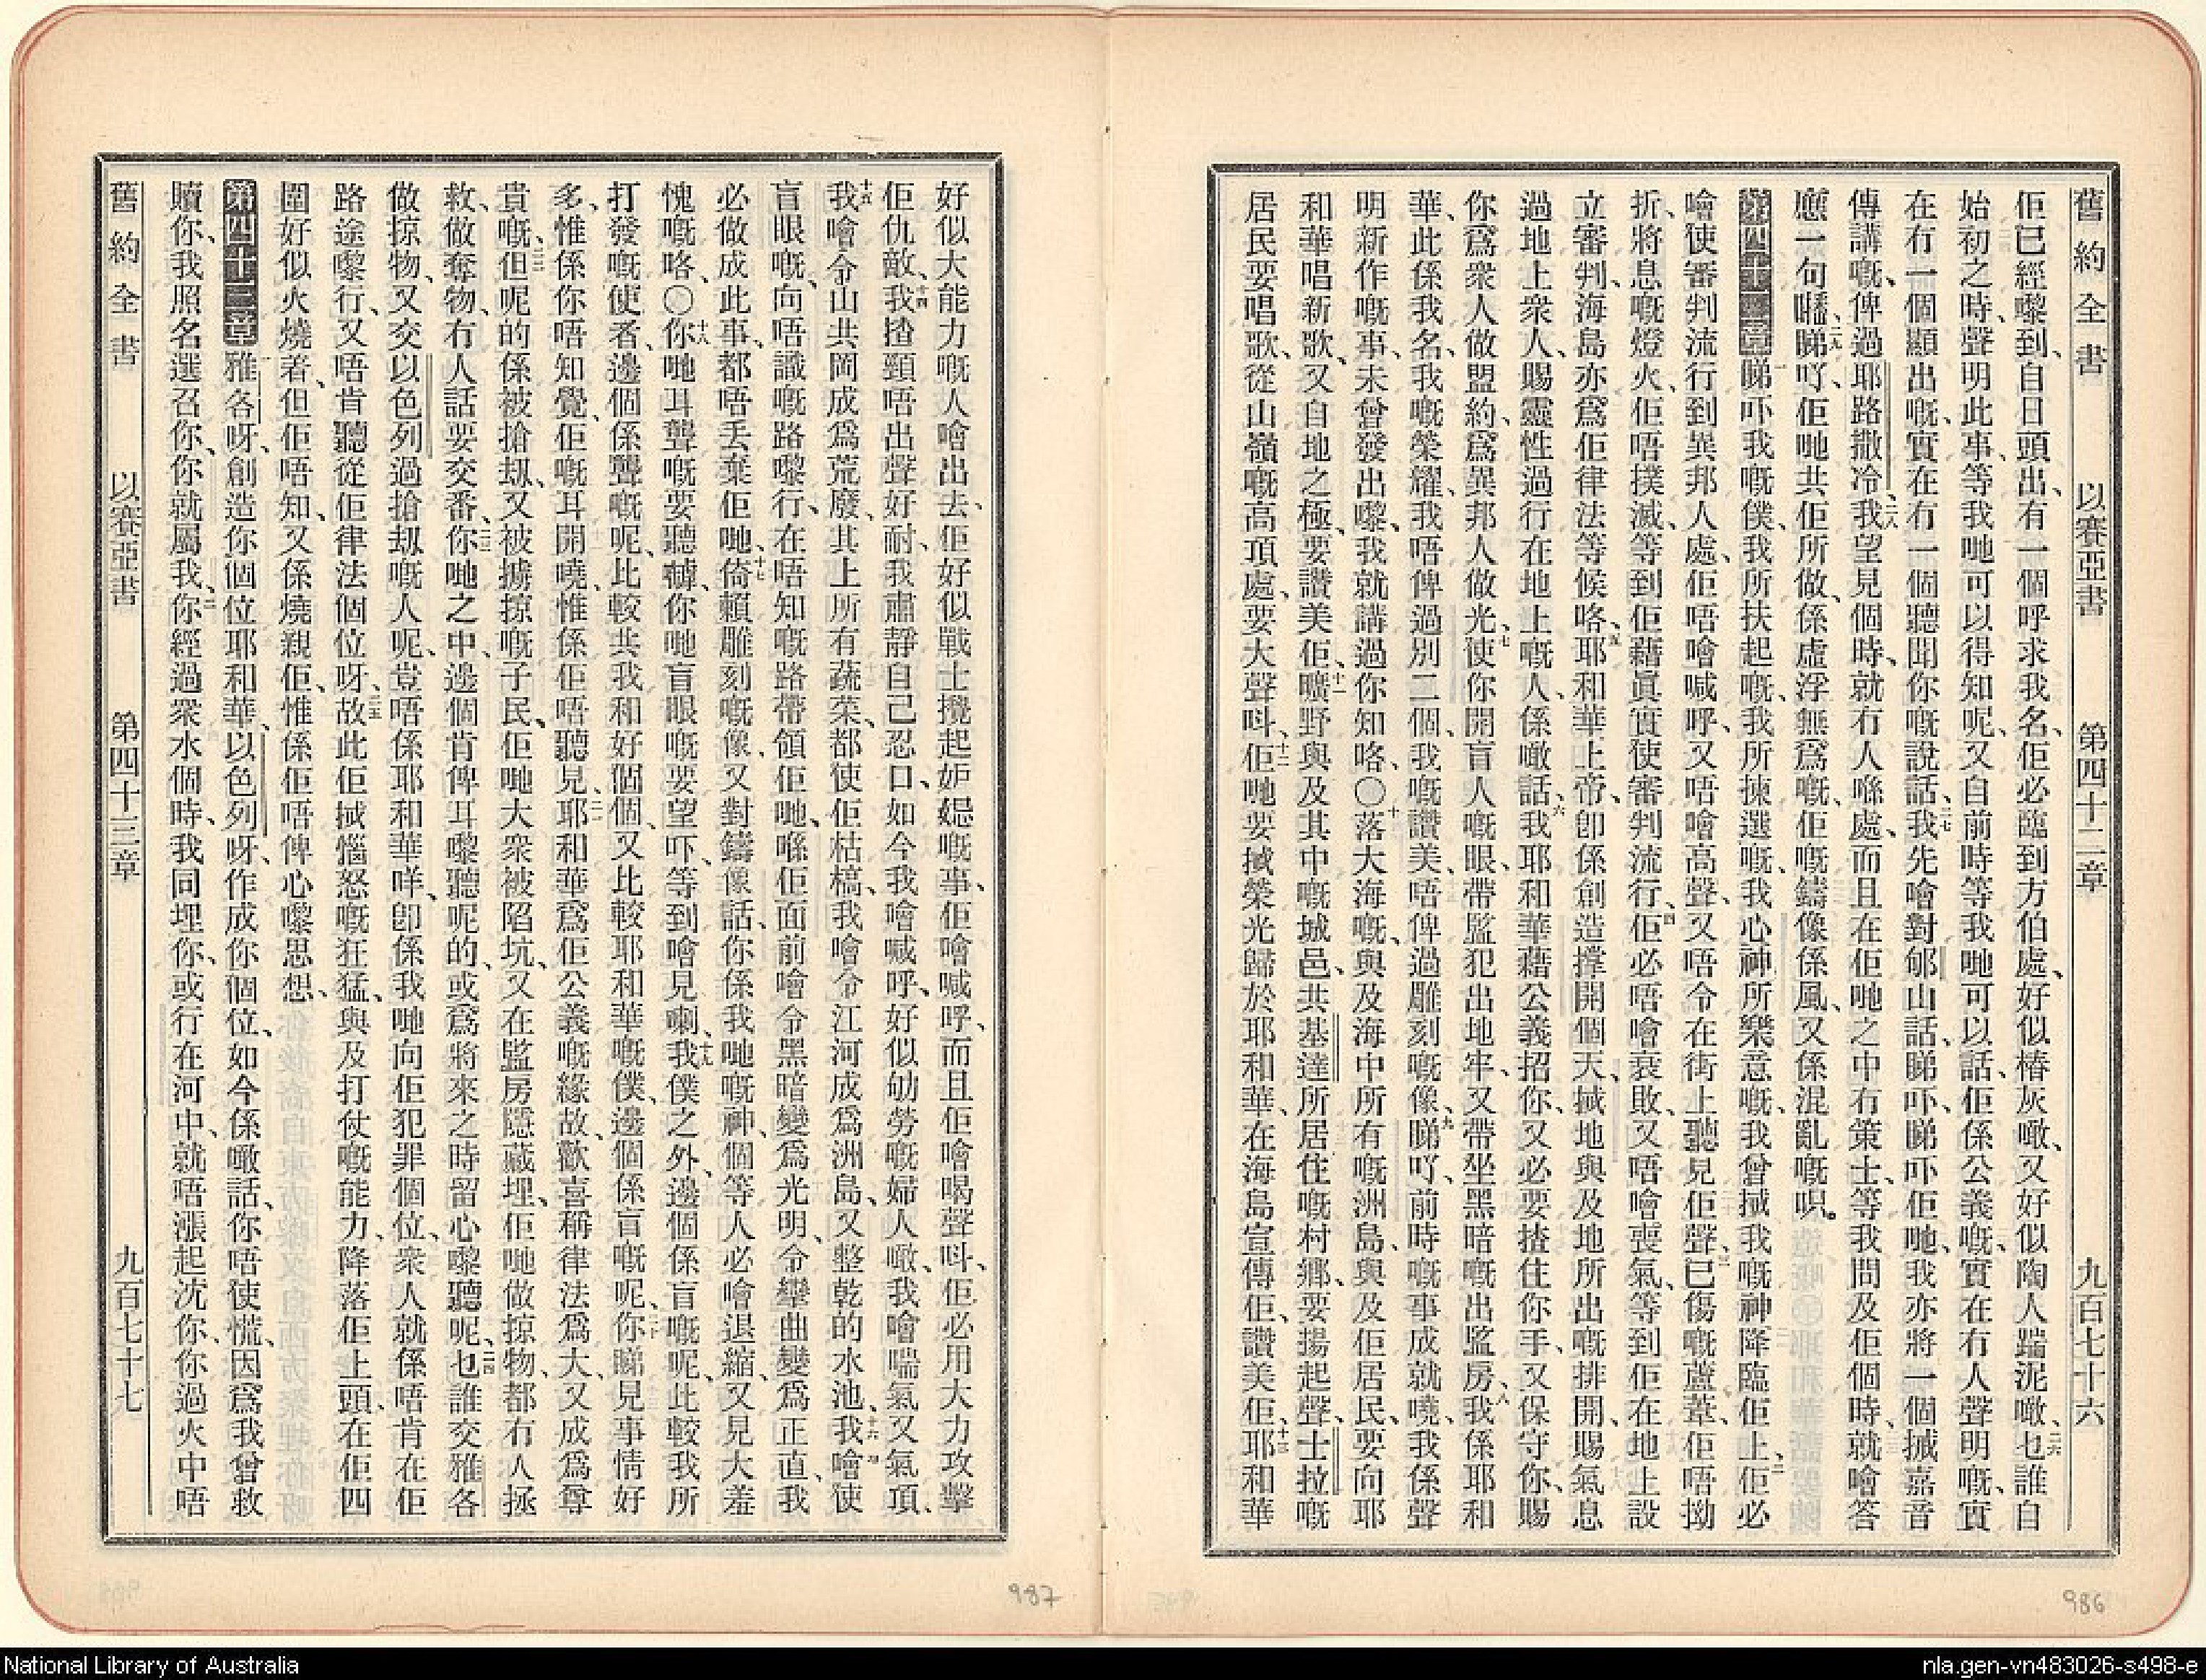 舊約全書 以賽亞書 第四十二章 九百七十六
佢已經嚟到、自日頭出、有一個呼求我名、佢必臨到方伯處、好似樁灰噉、又好似陶人踹泥噉、二六也誰自
始初之時、聲明此事、等我哋可以得知呢、又自前時等我哋可以話、佢係公義嘅、實在冇人聲明嘅、實
在冇一個顯出嘅、實在冇一個聽聞你嘅說話、二七我先噲對郇山話、睇吓、睇吓佢哋、我亦將一個搣嘉音
傳講嘅、俾過耶路撒冷、二八我望見個時、就冇人喺處、而且在佢哋之中有策士、等我問及佢個時、就噲答
應一句嚹、二九睇吖、佢哋共佢所做、係虛浮無爲嘅、佢嘅鑄像係風、又係混亂嘅呮。
第四十二章 一睇吓我嘅僕、我所扶起嘅、我所揀選嘅、我心神所樂意嘅、我曾搣我嘅神降臨佢上、二佢必
噲使審判流行到異邦人處、佢唔噲喊呼、又唔噲高聲、又唔令在街上聽見佢聲、三已傷嘅蘆葦、佢唔拗
折、將息嘅燈火、佢唔撲滅、等到佢藉眞實使審判流行、四佢必唔噲衰敗、又唔噲喪氣、等到佢在地上設
立審判、海島亦爲佢律法等候咯、五耶和華上帝、卽係創造撑開個天、搣地與及地所出嘅排開、賜氣息
過地上衆人、賜靈性過行在地上嘅人、係噉話、六我耶和華藉公義招你、又必要揸住你手、又保守你、賜
你爲衆人做盟約、爲異邦人做光、七使你開盲人嘅眼、帶監犯出地牢、又帶坐黑暗嘅出監房、八我係耶和
華、此係我名、我嘅榮耀、我唔俾過別二個、我嘅讚美、唔俾過雕刻嘅像、九睇吖、前時嘅事成就嘵、我係聲
明新作嘅事、未曾發出嚟、我就講過你知咯、〇十落大海嘅、與及海中所有嘅、洲島、與及佢居民、要向耶
和華唱新歌、又自地之極、要讚美佢、十一曠野與及其中嘅城邑、共基達所居住嘅村鄉、要揚起聲、士拉嘅
居民要唱歌、從山嶺嘅高頂處、要大聲呌、十二佢哋要搣榮光歸於耶和華、在海島宣傳佢、讚美佢、十三耶和華
好似大能力嘅人噲出去、佢好似戰士攪起妒𡢃嘅事、佢噲喊呼、而且佢噲喝聲呌、佢必用大力攻擊
佢仇敵、十四我揸頸唔出聲好耐、我肅靜自己忍口、如今我噲喊呼、好似劬勞嘅婦人噉、我噲喘氣又氣項、
十五我噲令山共岡成爲荒廢、其上所有蔬菜、都使佢枯槁、我噲令江河成爲洲島、又整乾的水池、十六我噲使
盲眼嘅、向唔識嘅路嚟行、在唔知嘅路帶領佢哋、喺佢面前噲令黑暗變爲光明、令彎曲變爲正直、我
必做成此事、都唔丢棄佢哋、十七倚賴雕刻嘅像、又對鑄像話、你係我哋嘅神、個等人必噲退縮、又見大羞
愧嘅咯、〇十八你哋耳聾嘅要聽嚹、你哋盲眼嘅要望吓、等到噲見喇、十九我僕之外、邊個係盲嘅呢、比較我所
打發嘅使者、邊個係聾嘅呢、比較共我和好個個、又比較耶和華嘅僕、邊個係盲嘅呢、二十你睇見事情好
多、惟係你唔知覺、佢嘅耳開嘵、惟係佢唔聽見、二一耶和華爲佢公義嘅緣故、歡喜稱律法爲大、又成爲尊
貴嘅、二二但呢的係被搶刼、又被擄掠嘅子民、佢哋大衆被陷坑、又在監房隱藏埋、佢哋做掠物、都冇人拯
救、做奪物、冇人話要交番、二三你哋之中、邊個肯俾耳嚟聽呢的、或爲將來之時留心嚟聽呢、二四也誰交雅各
做掠物、又交以色列過搶刼嘅人呢、豈唔係耶和華咩、卽係我哋向佢犯罪個位、衆人就係唔肯在佢
路途嚟行、又唔肯聽從佢律法個位呀、二五故此佢搣惱怒嘅狂猛、與及打仗嘅能力、降落佢上頭、在佢四
圍好似火燒着、但佢唔知、又係燒親佢、惟係佢唔俾心嚟思想、
第四十三章 一雅各呀、創造你個位耶和華、以色列呀、作成你個位、如今係噉話、你唔使慌、因爲我曾救
贖你、我照名選召你、你就屬我、二你經過衆水個時、我同埋你、或行在河中、就唔漲起沈你、你過火中唔
舊約全書 以賽亞書 第四十三章 九百七十七
987
986
National Library of Australia
nla.gen-vn483026-s498-e